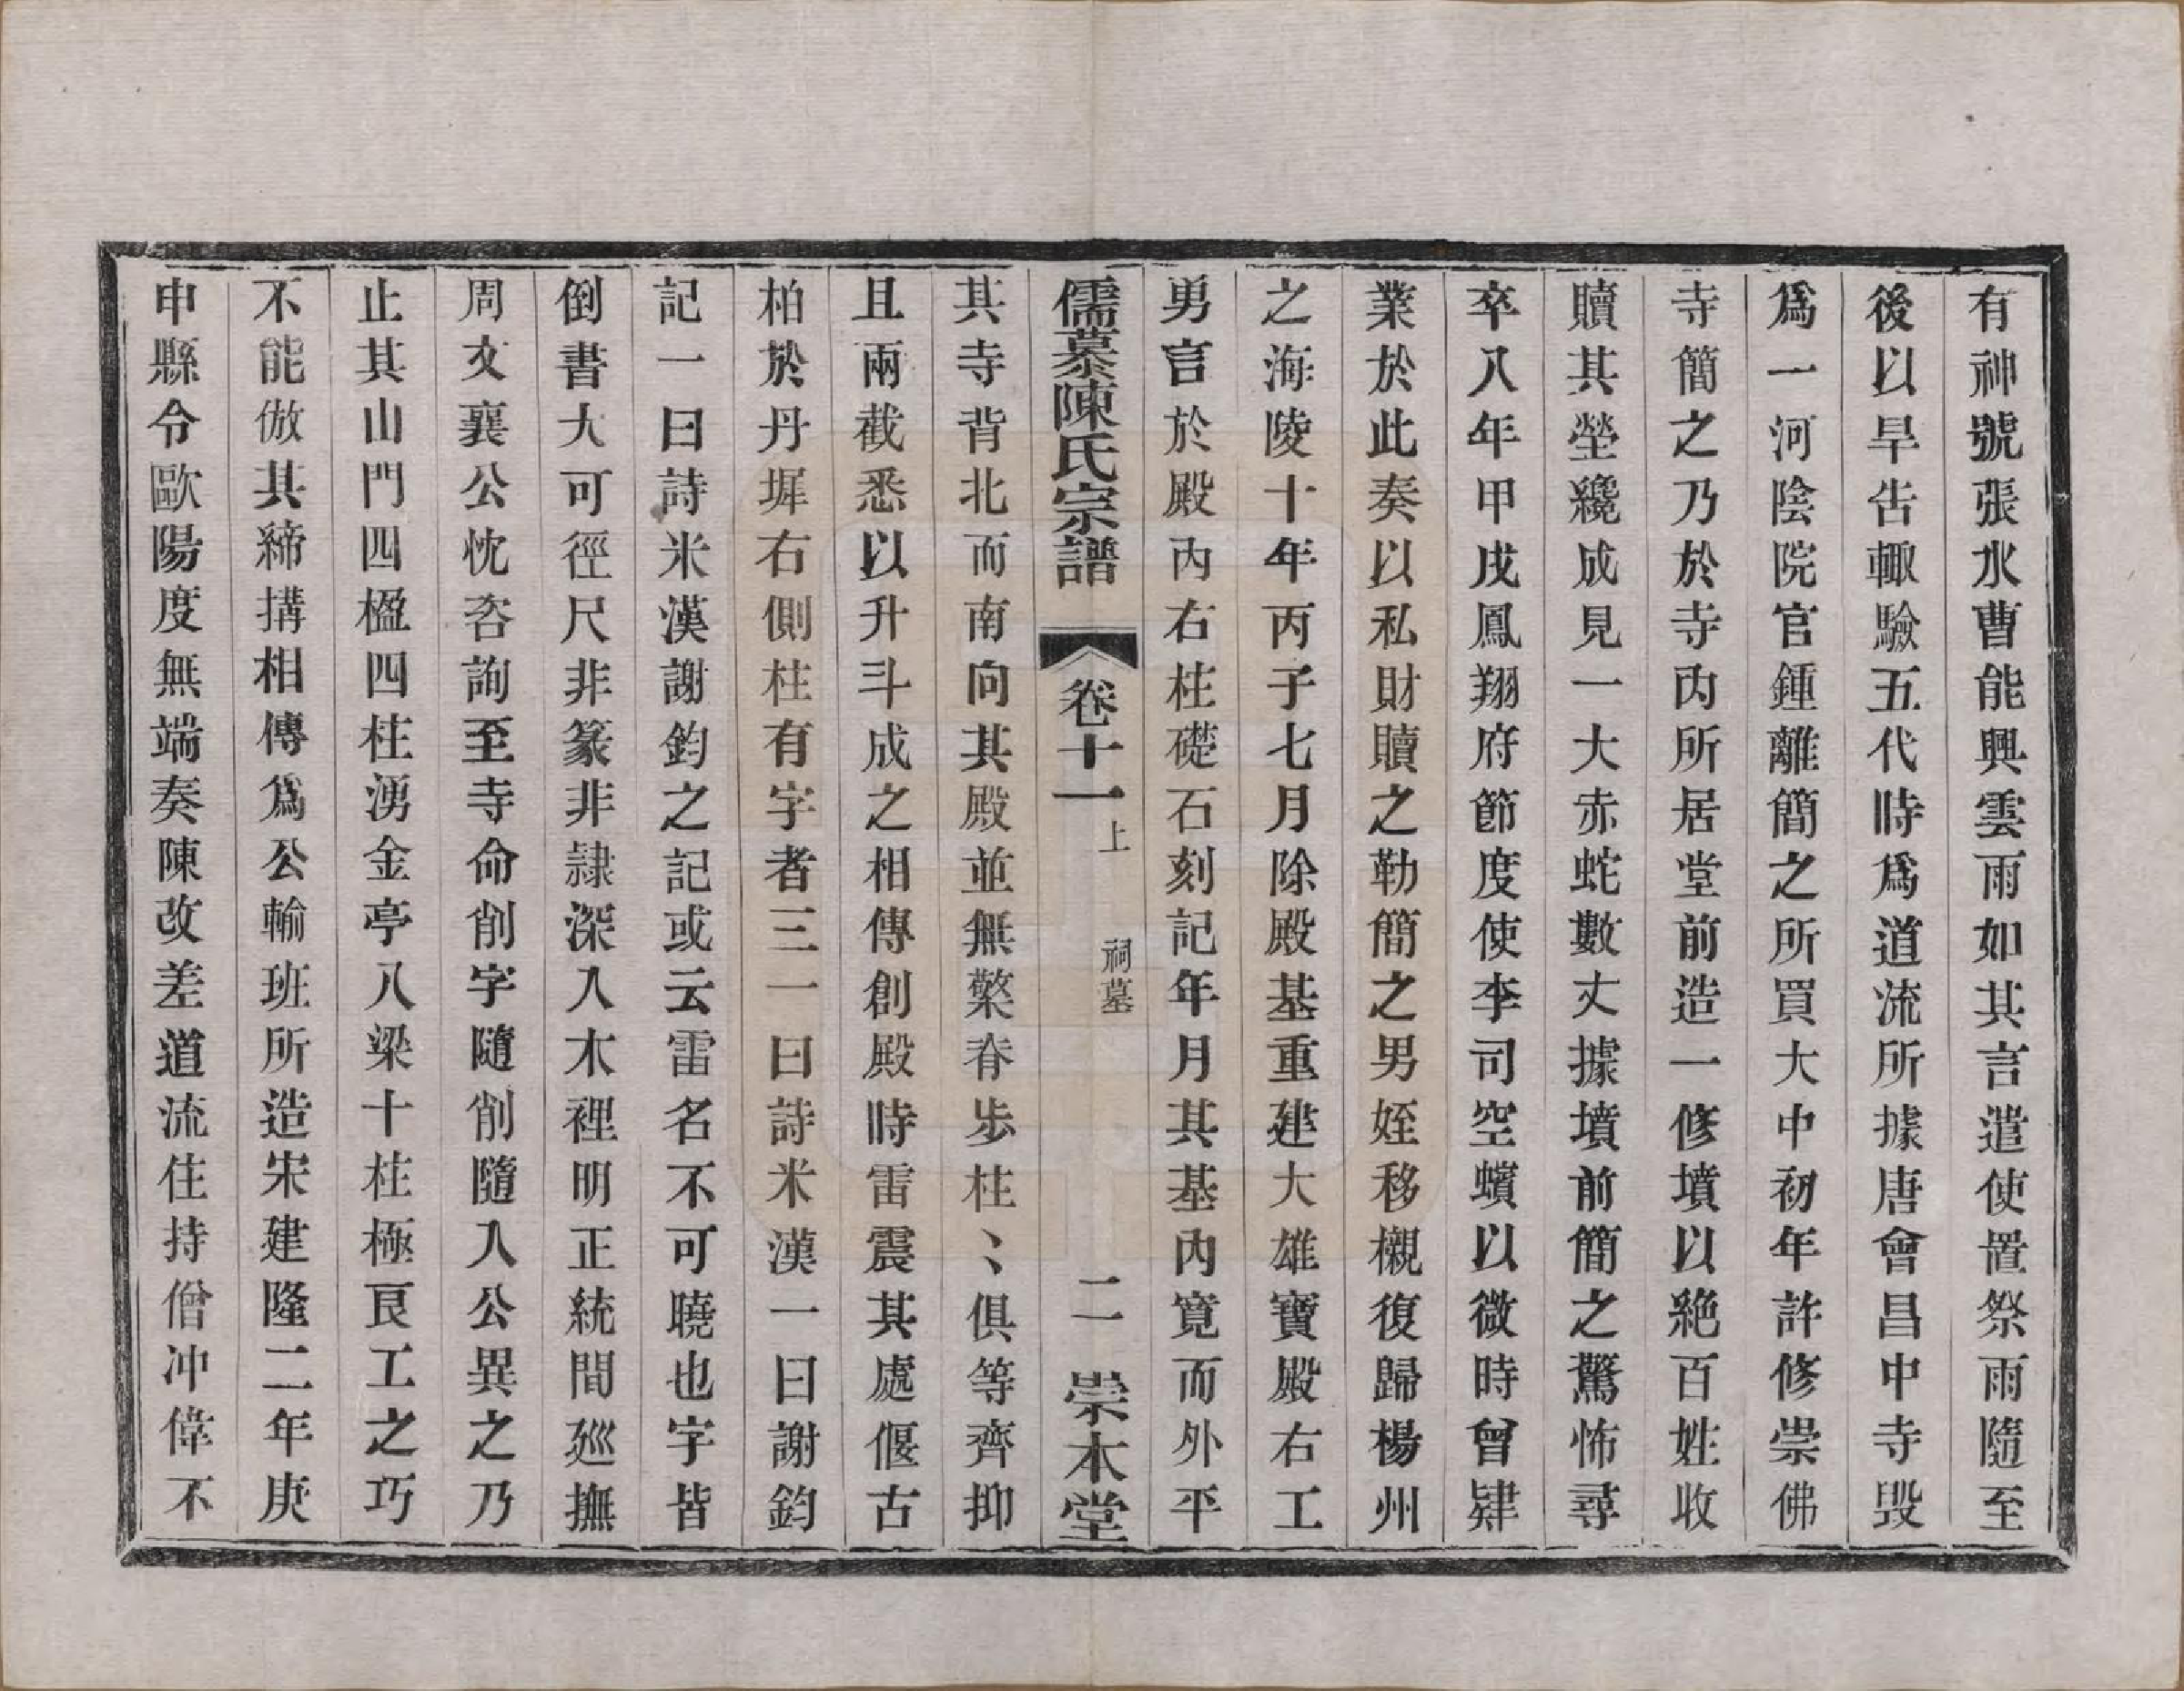 有神號張水曹能興雲雨如其言遣使置祭雨隨至
後以旱告輙驗五代時爲道流所據唐會昌中寺毁
爲一河陰院官鍾離簡之所買大中初年許修崇佛
寺簡之乃於寺内所居堂前造一修墳以絶百姓收
贖其塋纔成見一大赤蛇數丈據墳前簡之驚怖尋
卒八年甲戌鳳翔府節度使李司空蠙以微時曾肄
業於此奏以私財贖之勒簡之男姪移櫬復歸楊州
之海陵十年丙子七月除殿基重建大雄寶殿右工
勇言於殿内右柱礎石刻記年月其基内寛而外平
儒慕陳氏宗譜 卷十一上 祠墓 二 崇本堂
其寺背北而南向其殿並無檠脊步柱〻俱等齊抑
且兩截悉以升斗成之相傳創殿時雷震其處偃古
柏於丹墀右側柱有字者三一曰詩米漢一曰謝鈞
記一曰詩米漢謝鈞之記或云雷名不可曉也字皆
倒書大可徑尺非篆非隷深入木裡明正統間廵撫
周文襄公忱咨詢至寺命削字隨削隨入公異之乃
止其山門四楹四柱湧金亭八梁十柱極艮工之巧
不能倣其締搆相傳爲公輸班所造宋建隆二年庚
申縣令歐陽度無端奏陳改差道流住持僧冲偉不